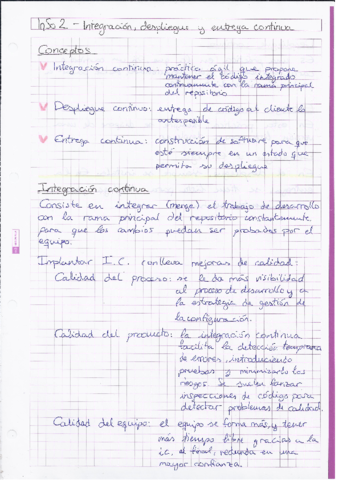 InSo 2 - Integración, despliegue y entrega continua
Conceptos
Integración continua: práctica ágil que propone
mantener el código integrado
continuamente con la rama principal
del repositorio
Despliegue continuo: entrega de código al cliente lo
antes posible
Entrega continua: construcción de software para que
esté siempre en un estado que
permita su despliegue
Integración continua
Consiste en integrar (merge) el trabajo de desarrollo
con la rama principal del repositorio constantemente
para que los cambios puedan ser probados por el
equipo.
Implantar I.C. conlleva mejoras de calidad:
Calidad del proceso: se le da más visibilidad
al proceso de desarrollo y a
la estrategia de gestión de
la configuración.
Calidad del producto: la integración continua
facilita la detección temprana
de errores, introduciendo
pruebas y minimizando los
riesgos. Se suelen lanzar
inspecciones de código para
detectar problemas de calidad.
Calidad del equipo: el equipo se forma más, y tener
más tiempo libre gracias a la
i.c., al final, redunda en una
mayor confianza.